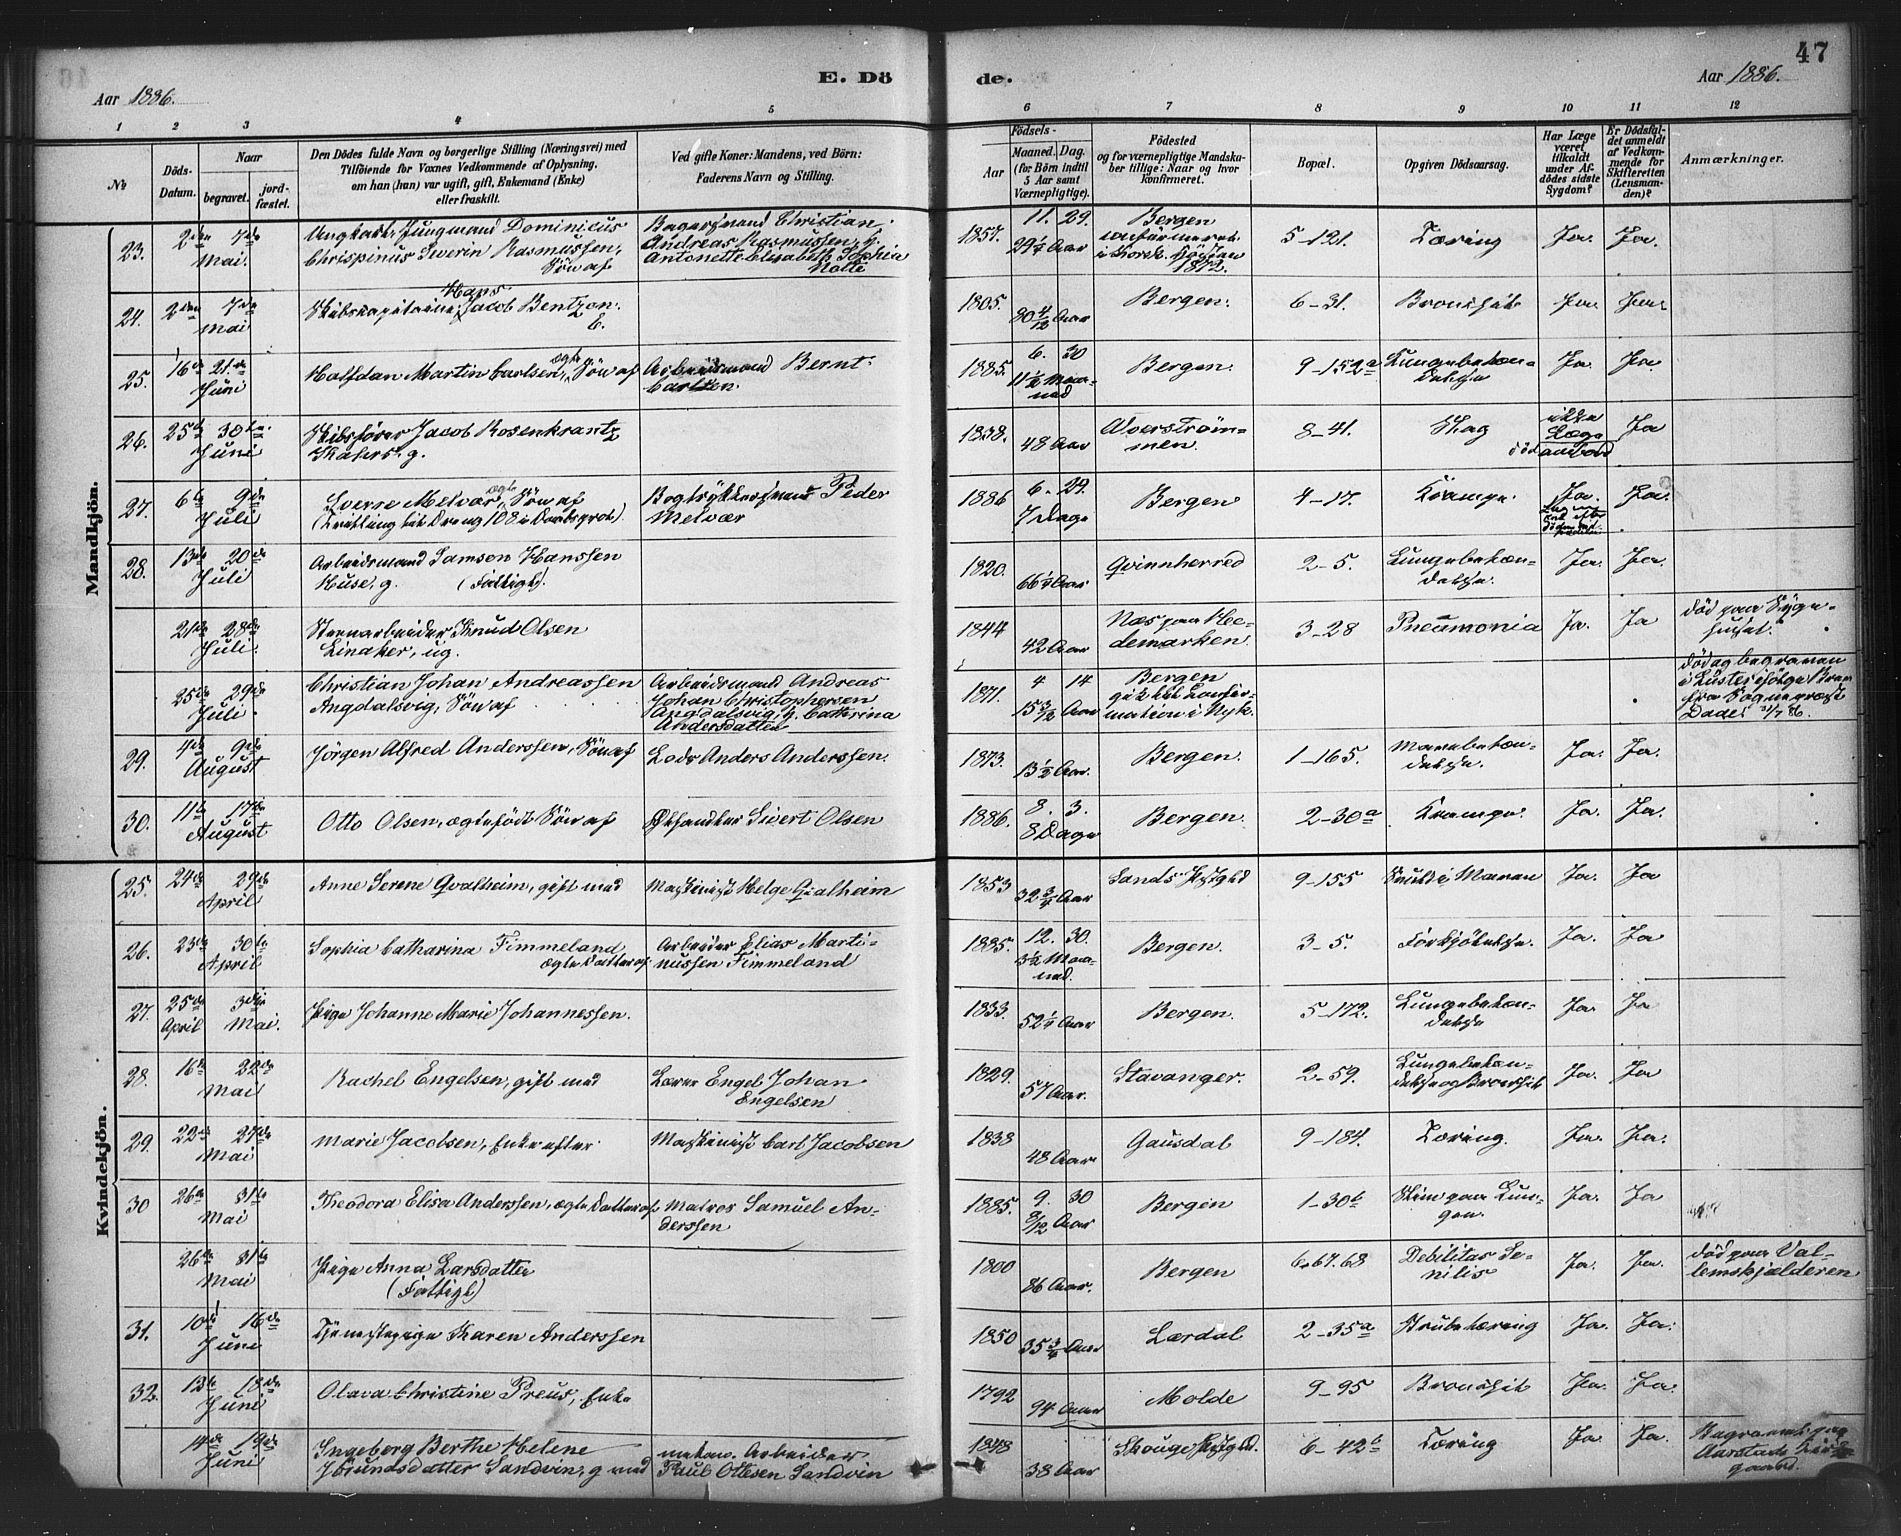 47
E. Dö de.
Aar 1886. Aar 1886.
1 2 3 4 5 6 7 8 9 10 11 12
№
Döds-Datum.
Naar
begravet. jord-fæstet.
Den Dödes fulde Navn og borgerlige Stilling (Næringsvei) med
Tilföiende for Voxnes Vedkommende af Oplysning,
om han (hun) var ugift, gift, Enkemand (Enke)
eller fraskilt.
Ved gifte Koner: Mandens, ved Börn:
Faderens Navn og Stilling.
Födsels-
Aar
Maaned. Dag.
(for Börn indtil
5 Aar samt
Værnepligtige).
Födested
og for værnepligtige Mandska-
ber tillige: Naar og hvor
konfirmeret.
Bopæl.
Opgiven Dödsaarsag.
Har Læge
været
tilkaldt
under Af-
dødes sidste
Sygdom?
Er Dödsfal-
det anmeldt
af Vedkom-
mende for
Skifteretten
(Lensman-
den)?
Anmærkninger.
Mandkjön.
23. 2den Mai 7de Ungkarl, Jungmand Dominicus
Chrispinus Severin Rasmussen,
Søn af
Bagersvend Christian
Andreas Rasmussen, g.
Antonette Elisabeth Sophia
Nolte
1857. 11. 29. Bergen
Confirmeret
i Korsk. Høsten
1872.
5-121. Tæring Ja. Ja.
24. 2den Mai 7de Skibskapitain Hans Jacob Bentzon.
E.
1805. 80 4/12 Aar Bergen. 6-31. Bronchit Ja. Ja.
25. 16de Juni 21de Halfdan Martin Carlsen, ægte Søn af Arbeidsmand Bernt
Carlsen.
1885. 6. 30 11 1/2 Maaned Bergen. 9-152a Lungebetæn-
delse Ja. Ja
26. 25de Juni 30te Skibsfører Jacob Rosenkrantz
g.
1838. 48 Aar Alverstrøm-
men. 8-41. Slag ikke
Læge
død ombord Ja
27. 6te Juli 9de Sverre Melvær, ægte Søn af
(Tvilling til Dreng 108 i Daabsprot.)
Bogtrykkersvend Peder
Melvær
1886 6. 29. 7 Dage Bergen 4-17. Krampe. Ja. Ja.
28. 13de Juli 20de Arbeidsmand Samson Hanssen
Huse, g. (Fattigl.)
1820. 66 1/2 Aar Qvinnherred 2-5. Lungebetæn-
delse. Ja. Ja.
21de Juli 28de Knud Olsen
Linaker, ug.
1844 42 Aar Næs paa He-
demarken. 3-28 Pneumonia Ja. Ja død paa Syge-
huset.
25de Juli 29de Christian Johan Andreassen
Angdalsvig, Søn af
Arbeidsmand Andreas
Johan Christophersen
Angdalsvig, g. Cathrina
Andersdatter
1871. 4 14 15 3/12 Aar Bergen
gik til Confir-
mation i Nyk. død og begraven
i Luster ifølge Brev
fra Sogneprest
Dade 31/7 86.
29. 4de August 9de Jörgen Alfred Anderssen, Søn af Lods Anders Anderssen.
1873. 13 1/2 Aar. Bergen. 1-165. Mavebetæn-
delse. Ja. Ja.
30. 11te August 17de Otto Olsen, ægtefødt Søn af Ølhandler Sivert Olsen
1886. 8. 3. 8 Dage Bergen. 2-30a Krampe. Ja. Ja.
Kvindekjön.
25. 24de April 29de Anne Serene Qvalheim, gift med Maskinist Helge Qvalheim
1853 32 3/4 Aar Sands Præstgjld 9-155 Maven Ja. Ja
26. 23de April 30te Sophia Catharina Fimmeland
ægte Datter af
Arbeider Elias Marti-
nussen Fimmeland
1885. 12. 30. 3 1/2 Maaned. Bergen. 3-5. Forkjølelse. Ja. Ja
27. 25de April 3die Mai. Pige Johanne Marie Johannessen.
1833. 52 1/2 Aar Bergen. 5-172. Lungebetæn-
delse Ja. Ja
28. 16de Mai 22de Rachel Engelsen, gift med Lærer Engel Johan
Engelsen
1829. 57 Aar. Stavanger. 2-59. Lungebetæn-
delse og Bronchit Ja. Ja
29. 22de Mai 27de Marie Jacobsen, Enke efter Maskinist Carl Jacobsen
1838 48 Aar Gausdal 9-184. Tæring. Ja. Ja.
30 26de Mai 31te Theodora Elisa Anderssen, ægte Datter af Matros Samuel An-
derssen
1885. 9. 30 8/12 Aar Bergen 1-30b Slim paa Lun-
gen. Ja. Ja
26de Mai 31te Pige Anna Larsdatter
(Fattigl.)
1800 86 Aar. Bergen 6-67.68 Debilitas Se-
nilis Ja. Ja. død paa Val-
lemskjælderen
31. 10de Juni 16de Tjenestepige Karen Anderssen
1850 35 3/4 Aar Lærdal 2-35a Strubetæring Ja. Ja.
32. 13de Juni 18de Olava Christine Preus, Enke
1792 94 Aar Molde 9-95 Bronchit Ja. Ja.
14de Juni 19de Ingeborg Berthe Helene
Jörundsdatter Sandvin, g. med
Arbeider
Paul Ottesen Sandvin
1848 38 Aar Skouge Præstgjld. 6-42b Tæring Ja. Ja. Begravet paa
Aarstads Kirke-
gaard.